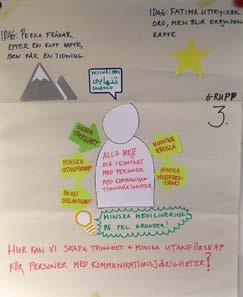 IDAG: PEKKA FRÅGAR
EFTER EN KOPP KAFFE,
MEN FÅR EN TIDNING.
IDAG: FATIMA UTTRYCKER
ORD, MEN BLIR ERBJUDEN
KAFFE.
GRUPP
3.
SKAPA
TRYGGHET
MINSKA
UTANFÖRSKAP
ÖKAD
DELAKTIGHET
ALLA MED
OCH I KONTAKT
MED PERSONER
MED KOMMUNIKA-
TIONSSVÅRIGHETER
KÄNSLA
MINSKA
MINSKA MEDICINERING
PÅ FEL GRUNDER!
HUR KAN VI SKAPA TRYGGHET & MINSKA UTANFÖRSKAP
FÖR PERSONER MED KOMMUNIKATIONSSVÅRIGHETER?